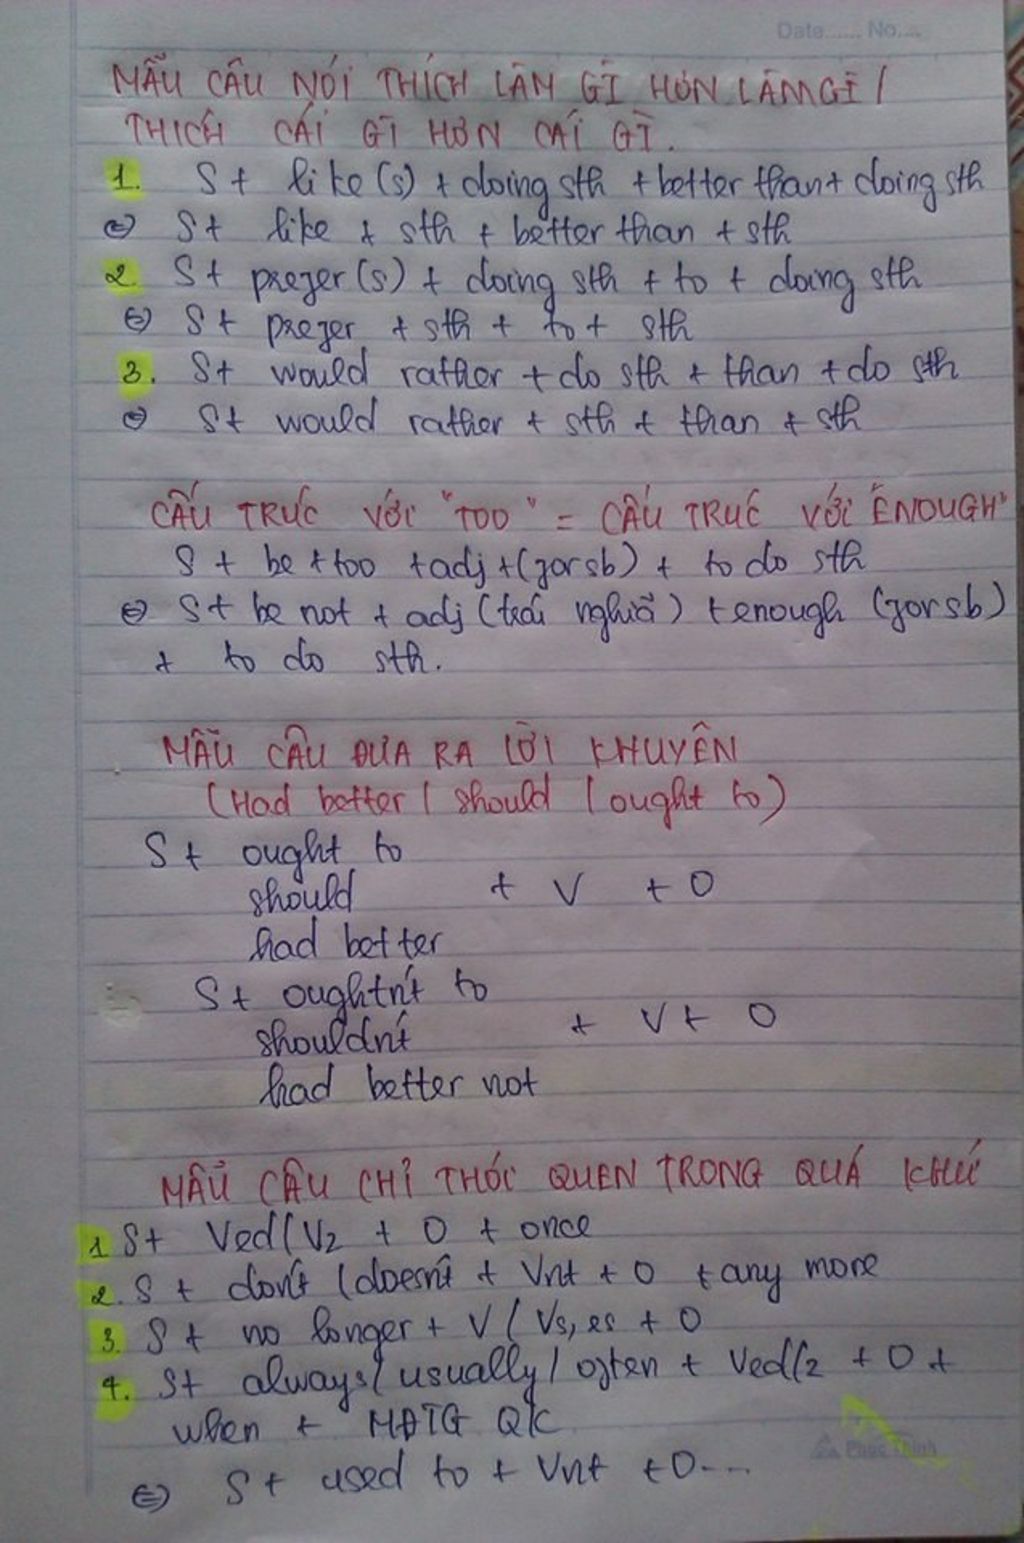 Date...... No....
MẪU CÂU NÓI THÍCH LÀM GÌ HƠN LÀM GÌ /
THÍCH CÁI GÌ HƠN CÁI GÌ.
1. S + like(s) + doing sth + better than + doing sth
⇔ S + like + sth + better than + sth
2. S + prefer(s) + doing sth + to + doing sth
⇔ S + prefer + sth + to + sth
3. S + would rather + do sth + than + do sth
⇔ S + would rather + sth + than + sth
CẤU TRÚC VỚI "TOO" = CẤU TRÚC VỚI "ENOUGH"
S + be + too + adj + (for sb) + to do sth
⇔ S + be not + adj (trái nghĩa) + enough (for sb)
+ to do sth.
MẪU CÂU ĐƯA RA LỜI KHUYÊN
(Had better / should / ought to)
S + ought to
should + V + O
had better
S + oughtn't to
shouldn't + V + O
had better not
MẪU CÂU CHỈ THÓI QUEN TRONG QUÁ KHỨ
1 S + Ved/V2 + O + once
2. S + don't / doesn't + Vnt + O + any more
3. S + no longer + V / Vs, es + O
4. S + always / usually / often + Ved/2 + O +
when + MĐTG QK
⇔ S + used to + Vnt + O...
Phúc Thịnh